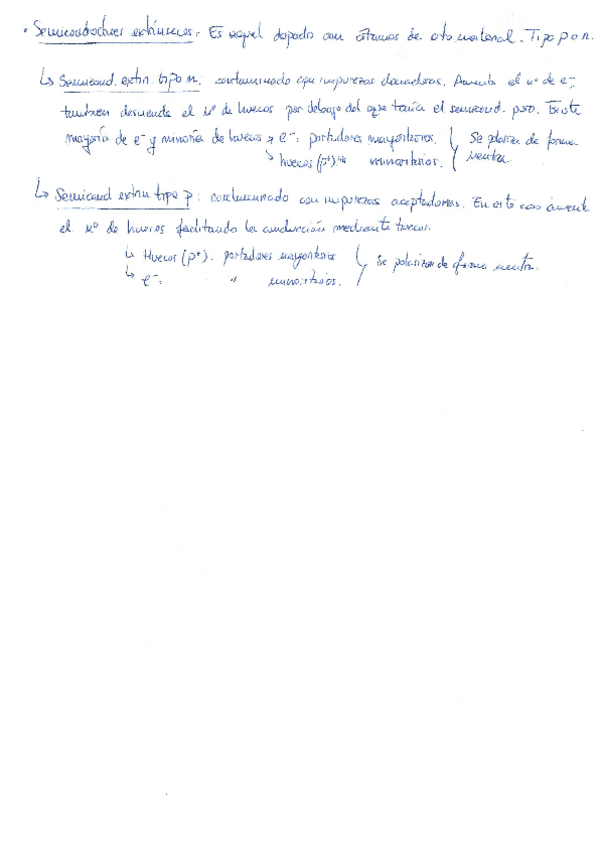 · Semiconductores extrínsecos: Es aquel dopado con átomos de oto material. Tipo p o n.
↳ Semicond. extrn. tipo n. contaminado con impurezas donadoras. Aumenta el nº de e⁻,
tambien desciende el nº de huecos por debajo del que tenía el semicond. puro. Existe
mayoría de e⁻ y minoría de huecos → e⁻: portadores mayoritarios. Se polariza de forma
↳ huecos (p⁺): " minoritarios. neutra.
↳ Semicond extrn tipo p: contaminado con impurezas aceptadoras. En este caso aument
el nº de huecos facilitando la conducción mediante huecos.
↳ Huecos (p⁺). portadores mayoritarios Se polarizan de forma neutra.
↳ e⁻: " minoritarios.